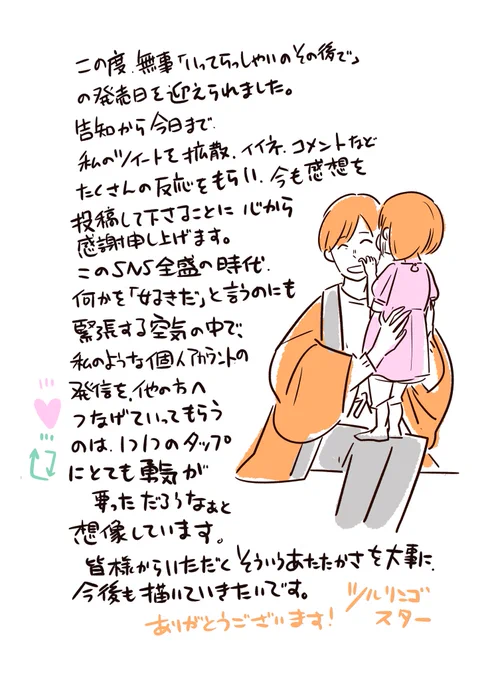 この度、無事「いってらっしゃいのその後で」
の発売日を迎えられました。
告知から今日まで、
私のツイートを拡散、イイネ、コメントなど
たくさんの反応をもらい、今も感想を
投稿して下さることに心から
感謝申し上げます。
このSNS全盛の時代、
何かを「好きだ」と言うのにも
緊張する空気の中で、
私のような個人アカウントの
発信を、他の方へ
つなげていってもらう
のは、1つ1つのタップ
にとても勇気が
要っただろうなぁと
想像しています。
皆様からいただくそういうあたたかさを大事に、
今後も描いていきたいです。
ツルリンゴスター
ありがとうございます!